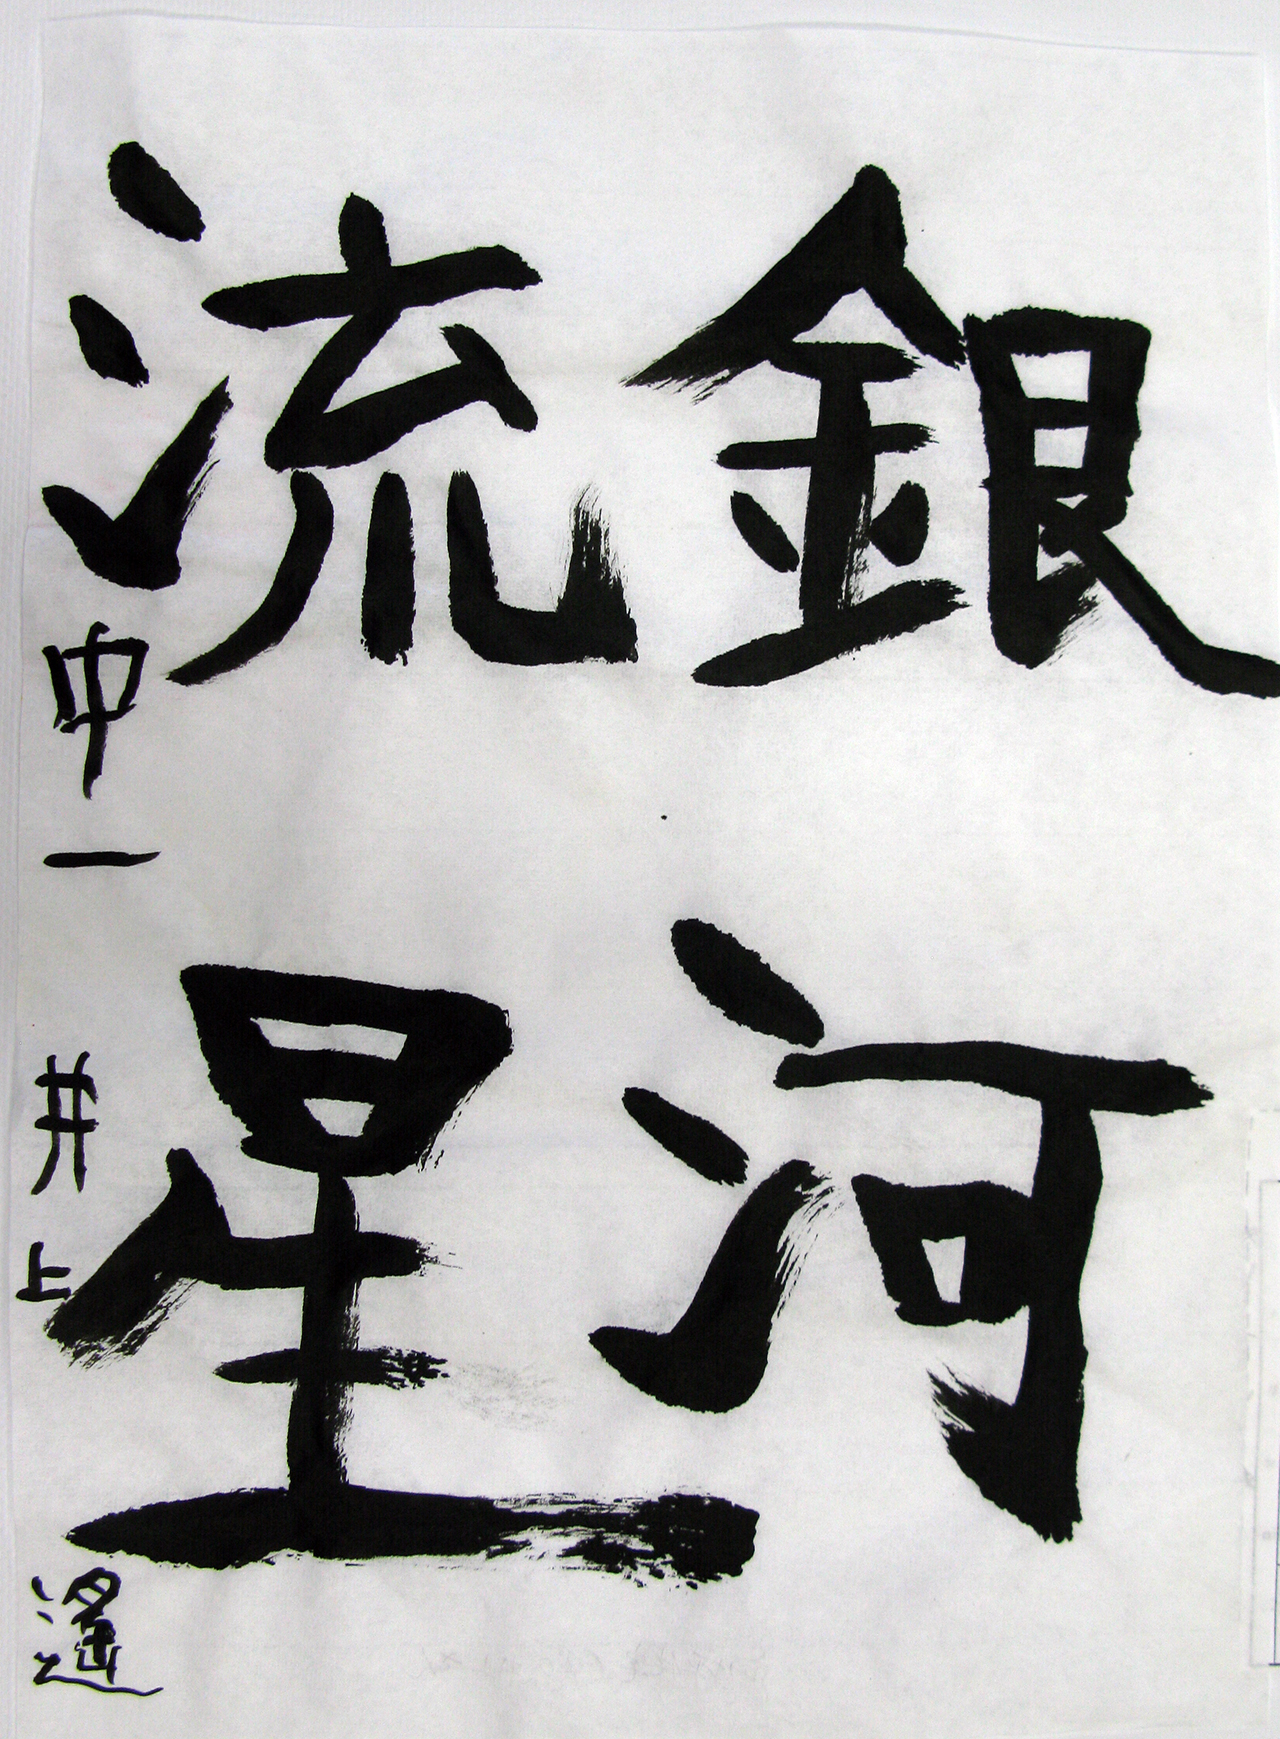 銀河
流星
中一 井上 遙